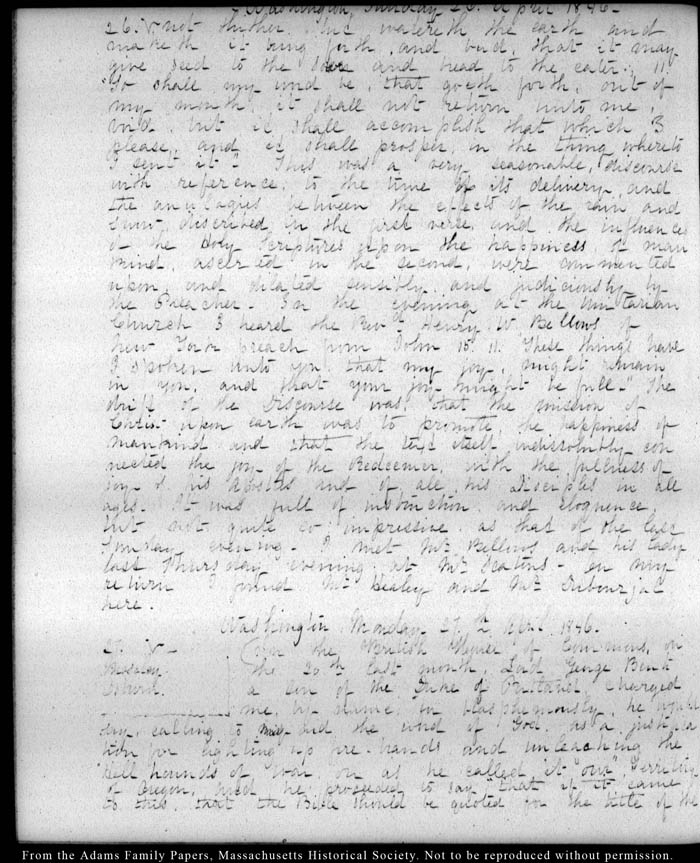 Washington, Sunday 26. April 1846.
26. V. not thither, but watereth the earth and
maketh it bring forth, and bud, that it may
give seed to the sower and bread to the eater: 11.
So shall my word be, that goeth forth, out of
my mouth, it shall not return unto me,
void, but it shall accomplish that which I
please, and it shall prosper, in the thing whereto
I sent it." This was a very seasonable, discourse
with reference, to the time of its delivery, and
the analogies between the effects of the rain and
snow, described, in the first verse, and the influence
of the Holy Scriptures upon the happiness, of man
kind, asserted in the second, were commented
upon, and dilated sensibly, and judiciously by
the Preacher. In the evening at the Unitarian
Church I heard the Revd. Henry W. Bellows of
New York preach from John 15. 11. These things have
I spoken unto you, that my joy, might remain
in you, and that your joy might be full." The
drift of the Discourse was, that the mission of
Christ upon earth was to promote, the happiness of
mankind and that the text itself indissolubly con
nected the joy of the Redeemer, with the fullness of
joy of his Apostles and of all his Disciples in all
ages. It was full of instruction, and eloquence,
but not quite so impressive, as that of the last
Sunday evening. I met Mr. Bellows and his lady
last Thursday evening at Mr. Seaton's. On my
return I found Mr. Healey and Mr. Dubourjal
here.
Washington Monday 27. April 1846.
27. V. In the British House of Commons, on
the 20th last month, Lord George Bentinck
a son of the Duke of Portland, charged
me, by name, for blasphemously, he
day, calling to my aid the word of God, as a justifica
tion for lighting up fire-brands, and unleashing the
Hell hounds of War, on as he called it "our" Territory
of Oregon, and he proceeded to say "that if it came
to this, that the Bible should be quoted for the title of the
From the Adams Family Papers, Massachusetts Historical Society. Not to be reproduced without permission.